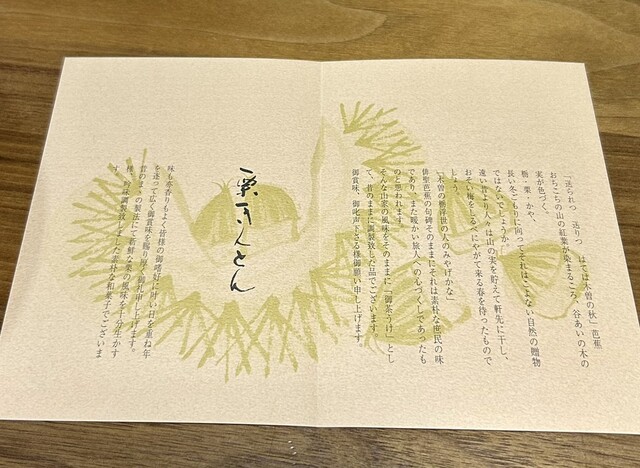 「送られつ 送りつ はては木曽の秋」芭蕉
おちこちの山の紅葉が染まるころ、谷あいの木の
実が色づく。
栃・栗・かや、
長い冬ごもりに向ってそれはこよない自然の贈物
ではないでしょうか。
遠い昔より人々は山の実を貯えて軒先に干し、
おそい梅をしるべにやがて来る春を待ったもので
しょう。
「木曽の橡浮世の人のみやげかな」
俳聖芭蕉の句碑そのままにそれは素朴な庶民の味
であり、また暖かい旅人への心づくしであったも
のと思われます。
そんな山家の風味をそのままに「御茶うけ」とし
て、昔のままに調製致した品でございます。
御賞味、御叱声下さる様御願い申し上げます。
栗きんとん
味も亦香りもよく皆様の御嗜好に叶い日を重ね年
を逐って広く御賞味を賜り厚く御礼申し上げます。
昔のまゝの製法にて新鮮な栗の風味を十分生かす
様、吟味調製致しました素朴な和菓子でございま
す。